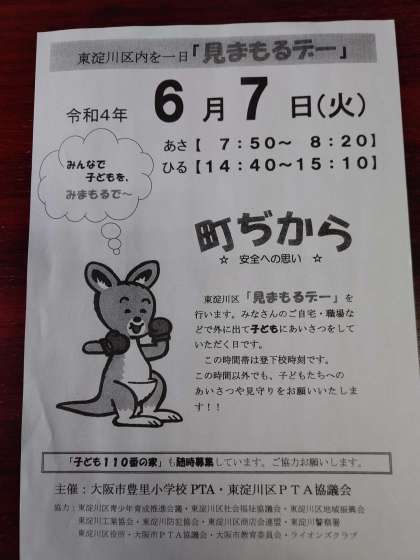 東淀川区内を一日「見まもるデー」
令和4年 6月7日(火)
あさ【 7:50〜 8:20】
ひる【14:40〜15:10】
みんなで
子どもを、
みまもるで〜
町ぢから
☆ 安全への思い ☆
東淀川区「見まもるデー」を
行います。みなさんのご自宅・職場な
どで外に出て子どもにあいさつをして
いただく日です。
この時間帯は登下校時刻です。
この時間以外でも、子どもたちへの
あいさつや見守りをお願いいたしま
す！！
「子ども110番の家」も随時募集しています。ご協力お願いします。
主催：大阪市豊里小学校PTA・東淀川区PTA協議会
協力：東淀川区青少年育成推進会議・東淀川区社会福祉協議会・東淀川区地域振興会
東淀川工業協会・東淀川防犯協会・東淀川区商店会連盟・東淀川警察署
東淀川区役所・大阪市PTA協議会・大阪市教育委員会・ライオンズクラブ